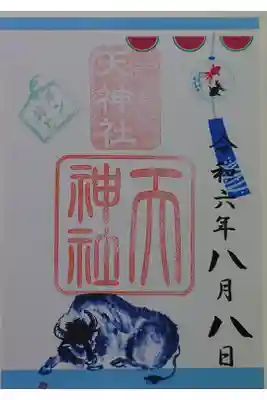 令和六年八月八日
天神社
天
神社